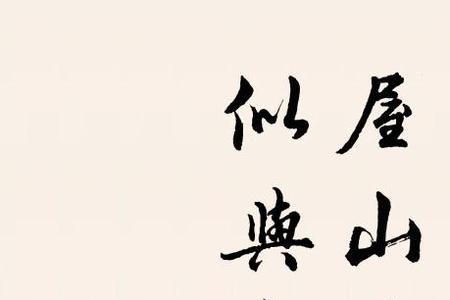 屋山
似與